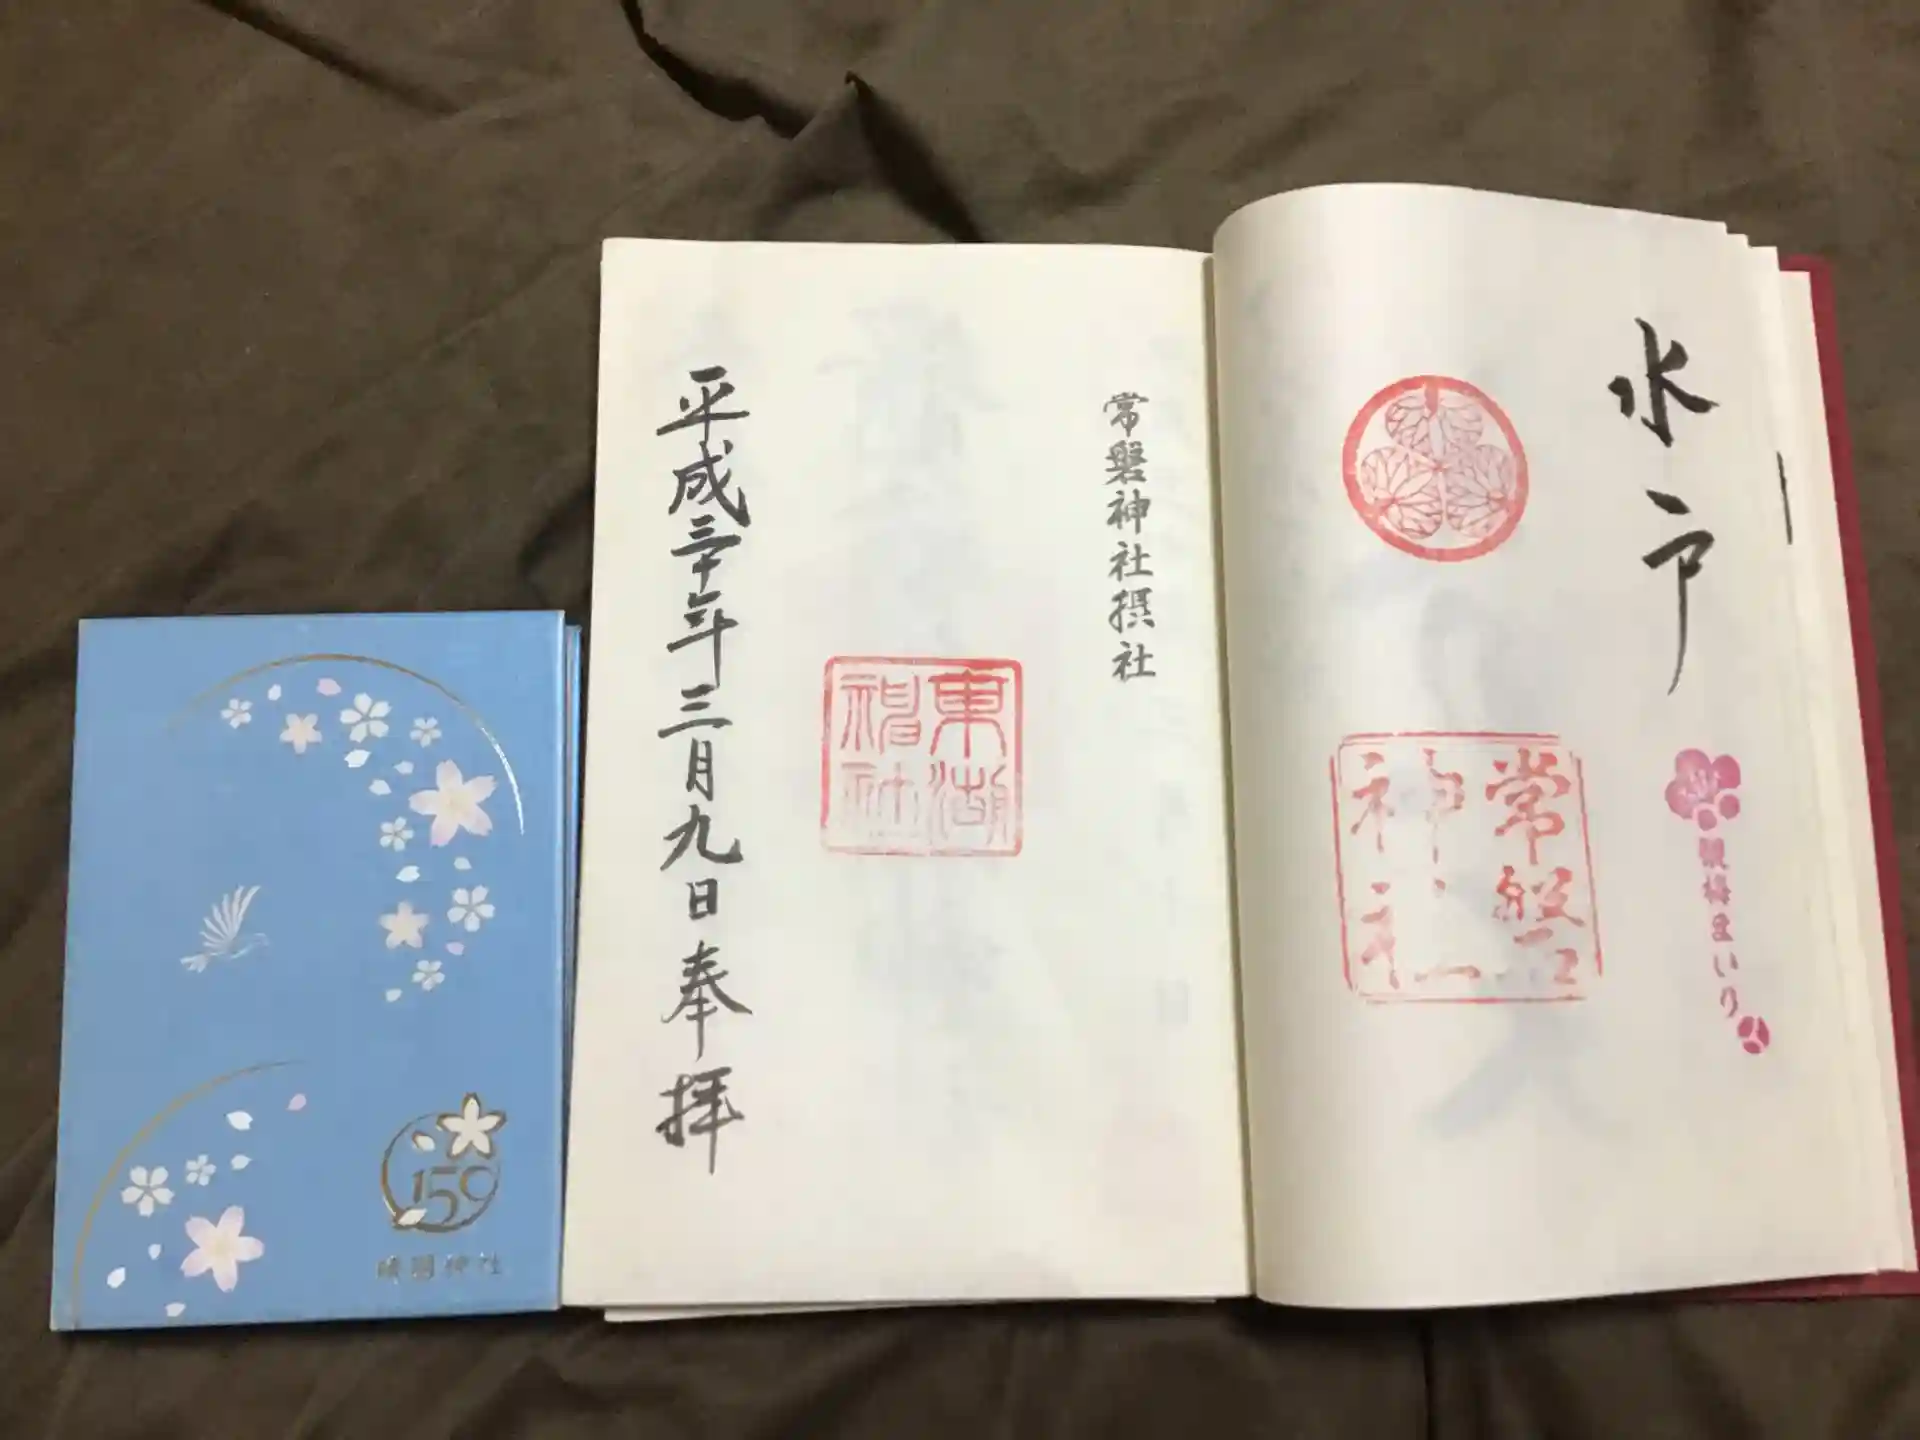 水戸
常磐
神社
観梅まいり
常磐神社摂社
東湖
神社
平成三十年三月九日奉拝
150
靖國神社